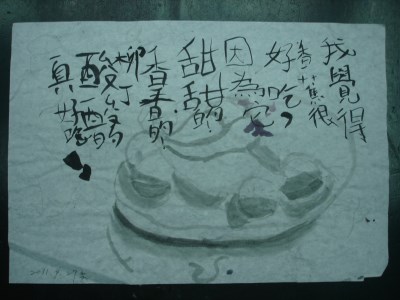 我覺得
香蕉很
好吃,
因為它
甜甜的,
香香的,
柳丁
酸酸的
真好吃